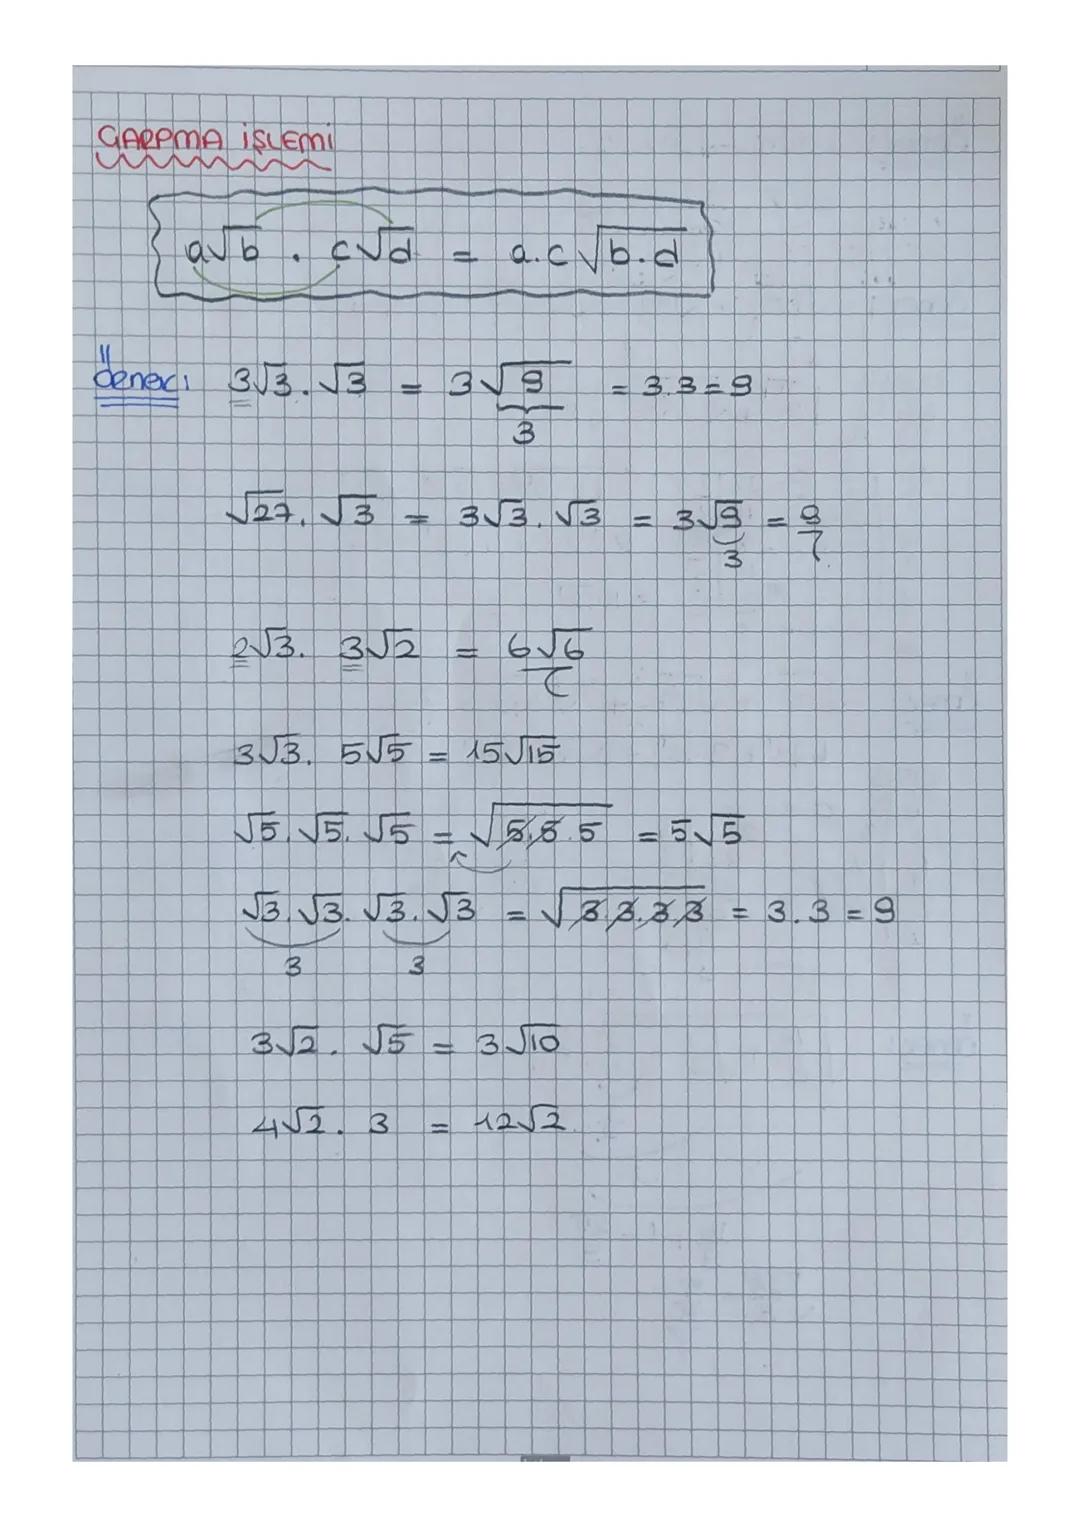 ÇARPMA İŞLEMİ
a√b . c√d = a.c √b.d
Örnek: 3√3 . √3 = 3√9 = 3.3 = 9
3
√27 . √3 = 3√3 . √3 = 3√9 = 9
3
2√3 . 3√2 = 6√6
3√3 . 5√5 = 15√15
√5 . √5 . √5 = √5.5.5 = 5√5
√3 . √3 . √3 . √3 = √3.3.3.3 = 3.3 = 9
3 3
3√2 . √5 = 3√10
4√2 . 3 = 12√2